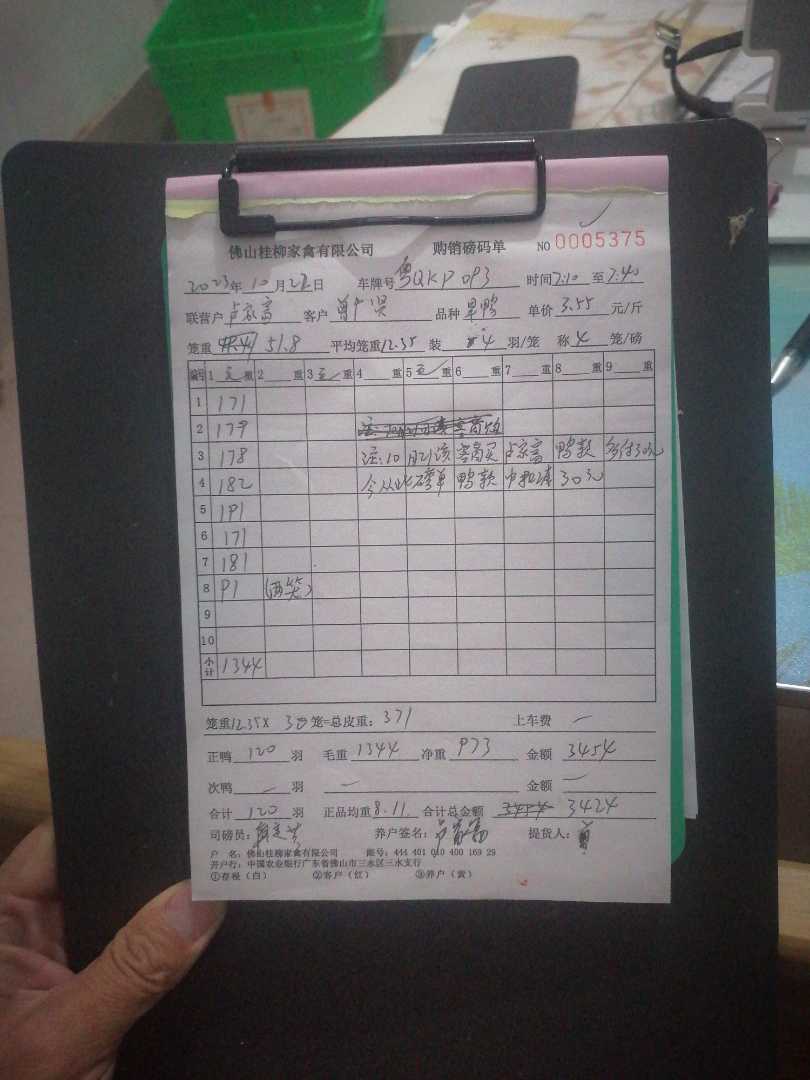 佛山桂柳家禽有限公司 购销磅码单 NO 0005375
2023年10月22日 车牌号粤QKP093 时间7:10至7:40
联营户 卢家富 客户 品种 旱鸭 单价 3.55 元/斤
笼重 51.8 平均笼重12.35 装 4 羽/笼 称 4 笼/磅
编号 1 重 2 重 3 重 4 重 5 重 6 重 7 重 8 重 9 重
1 171
2 179
3 178 注:10月21该客商买卢家富鸭款 多付30元
4 182 今从此磅单鸭款中扣清30元
5 191
6 171
7 181
8 91
9
10
小计 1344
笼重12.35X 30笼=总皮重:371 上车费 —
正鸭 120 羽 毛重 1344 净重 973 金额 3454
次鸭 — 羽 — 金额 —
合计 120 羽 正品均重 8.11 合计总金额 3454 3424
司磅员: 养户签名:卢家富 提货人:
户 名:佛山桂柳家禽有限公司 账号:444 401 010 400 169 29
开户行:中国农业银行广东省佛山市三水区三水支行
①存根(白) ②客户(红) ③养户(黄)